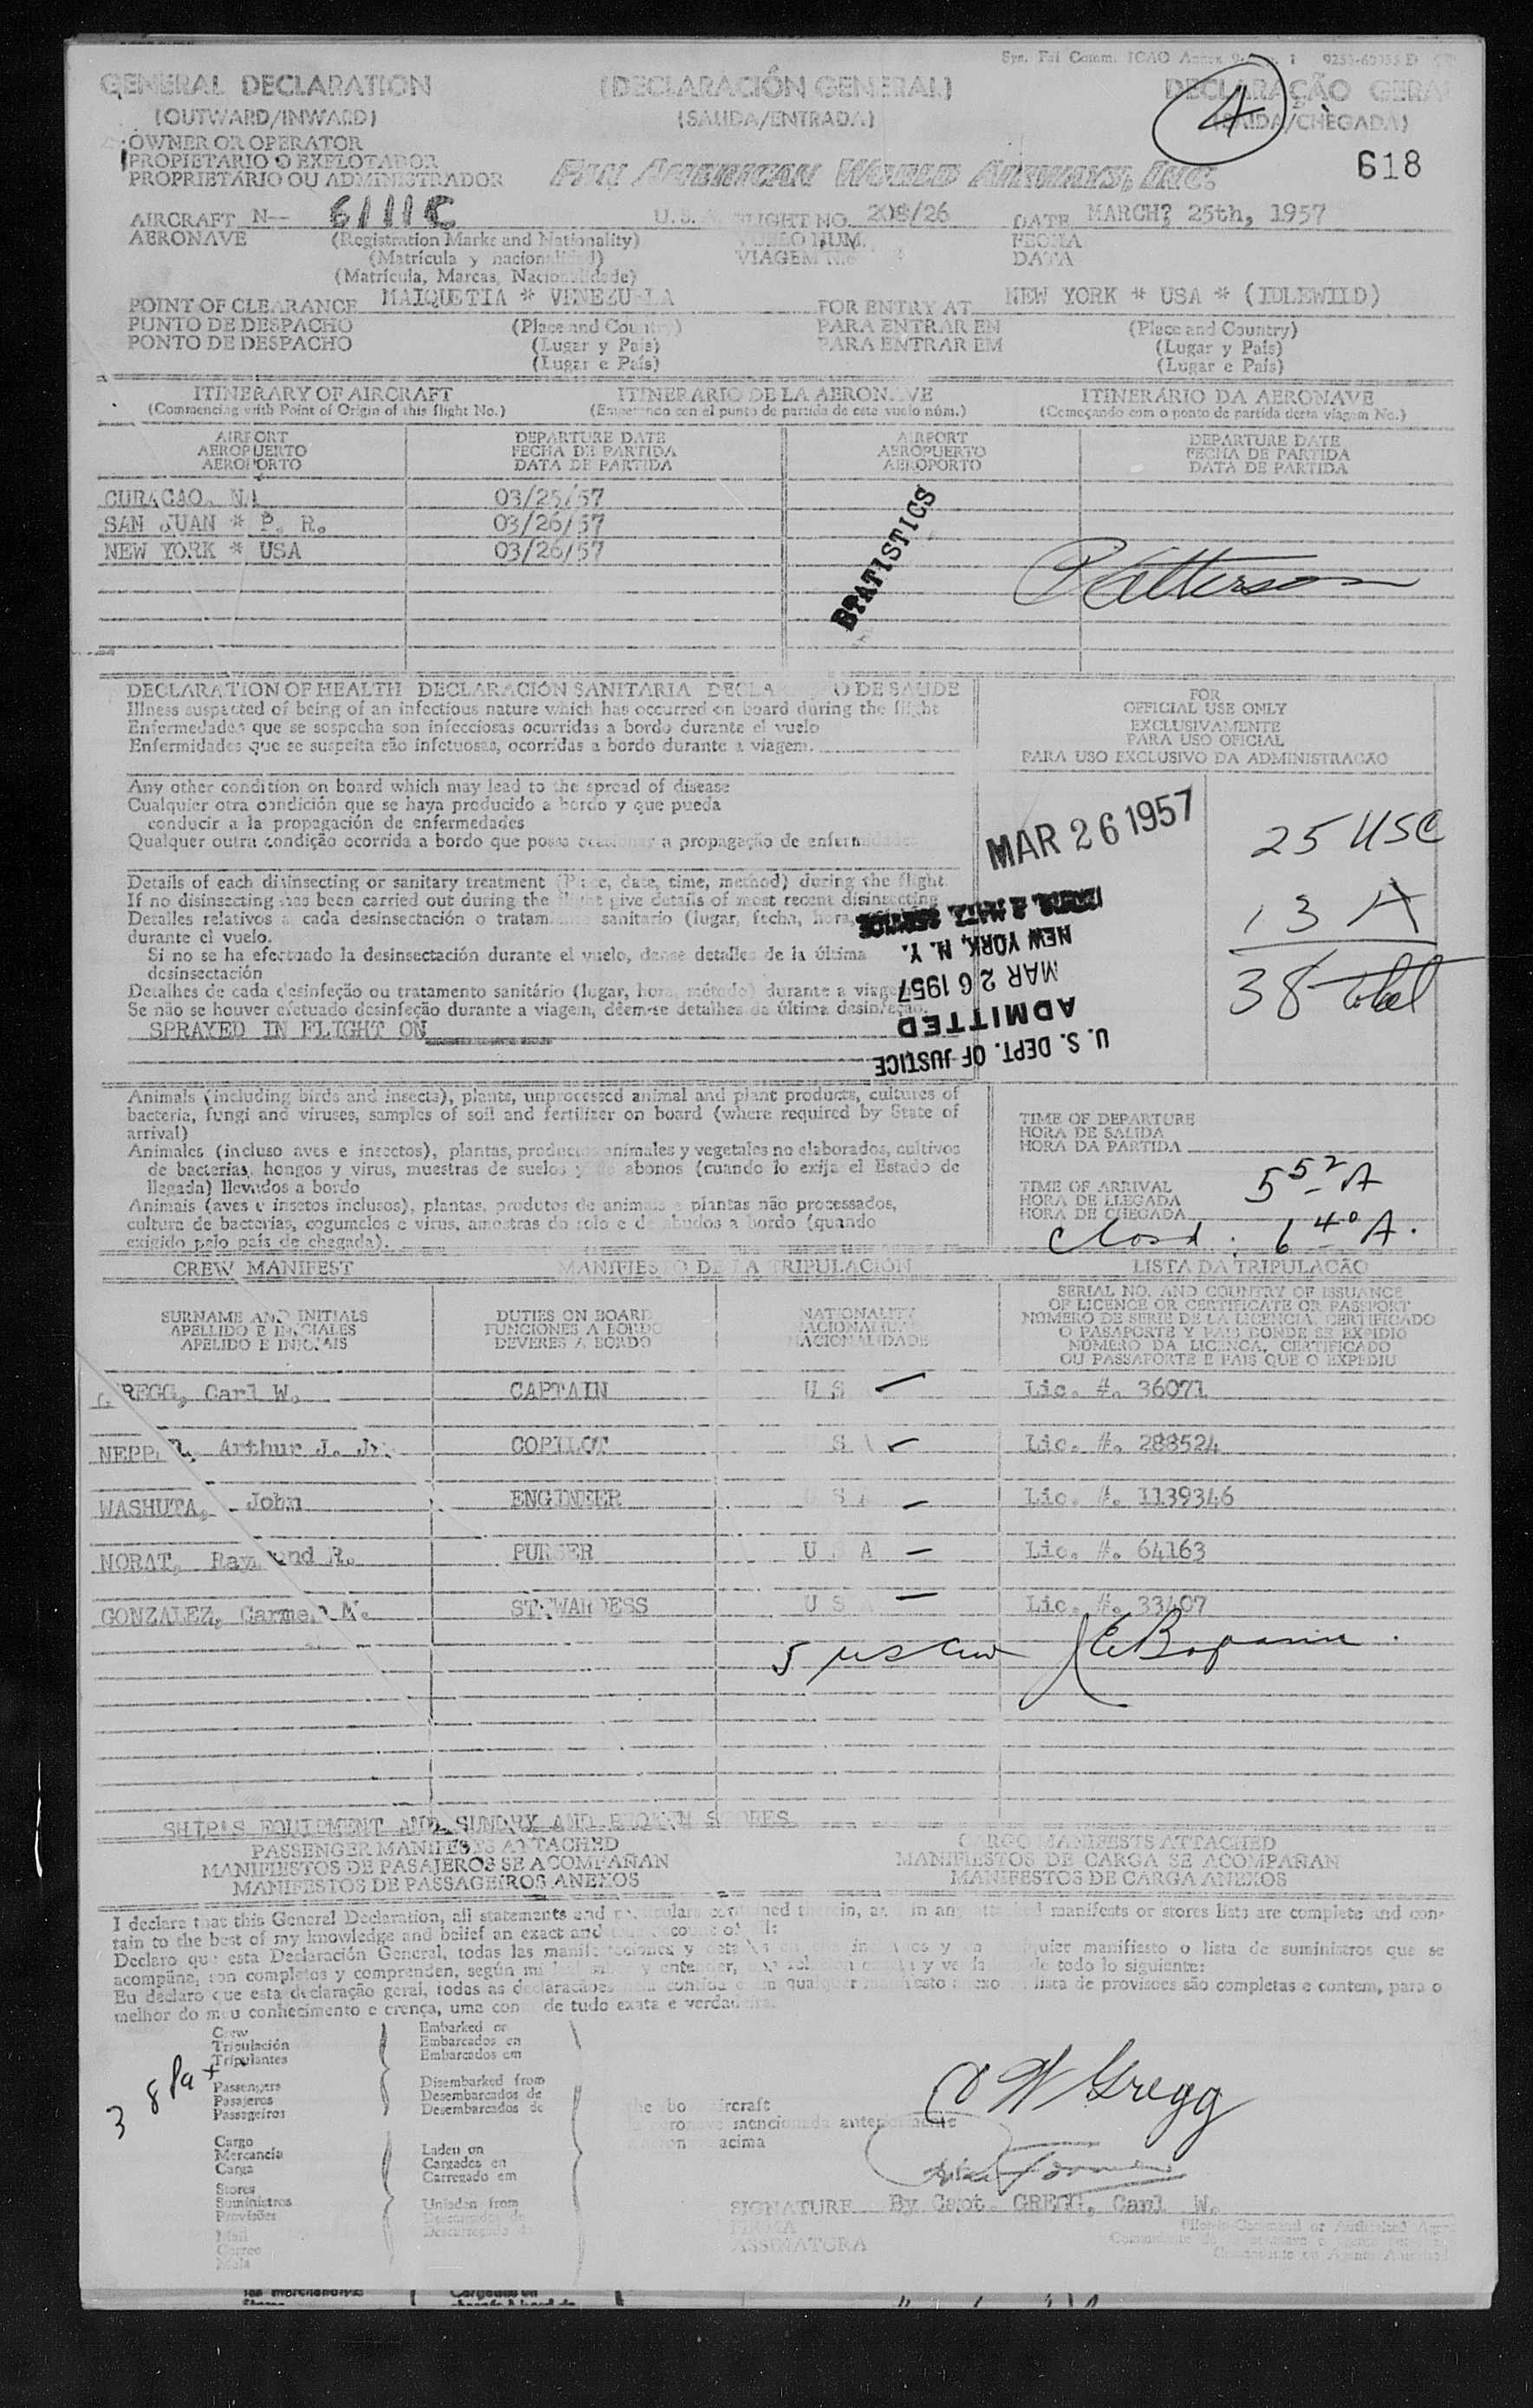 Sys. Fal Comm. ICAO Annex 9
GENERAL DECLARATION (DECLARACIÓN GENERAL) DECLARAÇÃO GERAL
(OUTWARD/INWARD) (SALIDA/ENTRADA) (SAIDA/CHEGADA)
4
OWNER OR OPERATOR
PROPIETARIO O EXPLOTADOR
PROPRIETÁRIO OU ADMINISTRADOR PAN AMERICAN WORLD AIRWAYS, INC. 618
AIRCRAFT N-- 6111C U.S. FLIGHT NO. 208/26 DATE MARCH? 25th, 1957
AERONAVE (Registration Marks and Nationality) VUELO NUM. FECHA
(Matrícula y nacionalidad) VIAGEM No. DATA
(Matrícula, Marcas, Nacionalidade)
POINT OF CLEARANCE MAIQUETIA * VENEZUELA FOR ENTRY AT NEW YORK * USA * (IDLEWILD)
PUNTO DE DESPACHO (Place and Country) PARA ENTRAR EN (Place and Country)
PONTO DE DESPACHO (Lugar y País) PARA ENTRAR EM (Lugar y País)
(Lugar e País) (Lugar e País)
ITINERARY OF AIRCRAFT ITINERARIO DE LA AERONAVE ITINERÁRIO DA AERONAVE
(Commencing with Point of Origin of this flight No.) (Empezando con el punto de partida de este vuelo núm.) (Começando com o ponto de partida desta viagem No.)
AIRPORT DEPARTURE DATE AIRPORT DEPARTURE DATE
AEROPUERTO FECHA DE PARTIDA AEROPUERTO FECHA DE PARTIDA
AEROPORTO DATA DE PARTIDA AEROPORTO DATA DE PARTIDA
CURACAO. NA 03/25/57
SAN JUAN * P. R. 03/26/57
NEW YORK * USA 03/26/57
STATISTICS
Patterson
DECLARATION OF HEALTH DECLARACIÓN SANITARIA DECLARAÇÃO DE SAUDE
Illness suspected of being of an infectious nature which has occurred on board during the flight
Enfermedades que se sospecha son infecciosas ocurridas a bordo durante el vuelo
Enfermidades que se suspeita são infetuosas, ocorridas a bordo durante a viagem.
FOR
OFFICIAL USE ONLY
EXCLUSIVAMENTE
PARA USO OFICIAL
PARA USO EXCLUSIVO DA ADMINISTRACÃO
Any other condition on board which may lead to the spread of disease
Cualquier otra condición que se haya producido a bordo y que pueda
conducir a la propagación de enfermedades
Qualquer outra condição ocorrida a bordo que possa ocasionar a propagação de enfermidades
MAR 26 1957
25 USC
13 A
38 total
Details of each disinsecting or sanitary treatment (Place, date, time, method) during the flight.
If no disinsecting has been carried out during the flight give details of most recent disinsecting
Detalles relativos a cada desinsectación o tratamiento sanitario (lugar, fecha, hora,
durante el vuelo.
Si no se ha efectuado la desinsectación durante el vuelo, dense detalles de la última
desinsectación
Detalhes de cada desinfeção ou tratamento sanitário (lugar, hora, método) durante a viagem
Se não se houver efetuado desinfeção durante a viagem, dêem-se detalhes da última desinfeção.
SPRAYED IN FLIGHT ON
U. S. DEPT. OF JUSTICE
ADMITTED
MAR 26 1957
NEW YORK, N. Y.
Animals (including birds and insects), plants, unprocessed animal and plant products, cultures of
bacteria, fungi and viruses, samples of soil and fertilizer on board (where required by State of
arrival)
Animales (incluso aves e insectos), plantas, productos animales y vegetales no elaborados, cultivos
de bacterias, hongos y virus, muestras de suelos y de abonos (cuando lo exija el Estado de
llegada) llevados a bordo
Animais (aves e insetos inclusos), plantas, produtos de animais e plantas não processados,
cultura de bacterias, cogumelos e virus, amostras do solo e de abudos a bordo (quando
exigido pelo país de chegada).
TIME OF DEPARTURE
HORA DE SALIDA
HORA DA PARTIDA
TIME OF ARRIVAL
HORA DE LLEGADA
HORA DE CHEGADA 5 52 A
Closd: 6 40 A.
CREW MANIFEST MANIFIESTO DE LA TRIPULACIÓN LISTA DA TRIPULACÃO
SURNAME AND INITIALS DUTIES ON BOARD NATIONALITY SERIAL NO. AND COUNTRY OF ISSUANCE
APELLIDO E INICIALES FUNCIONES A BORDO NACIONALIDAD OF LICENCE OR CERTIFICATE OR PASSPORT
APELIDO E INICIAIS DEVERES A BORDO NACIONALIDADE NÚMERO DE SERIE DE LA LICENCIA, CERTIFICADO
O PASAPORTE Y PAIS DONDE SE EXPIDIÓ
NÚMERO DA LICENCA, CERTIFICADO
OU PASSAPORTE E PAIS QUE O EXPEDIU
GREGG, Carl W. CAPTAIN U S Lic. #. 36071
Arthur J. Jr. COPILOT S A Lic. #. 288524
WASHUTA, John ENGINEER U S A Lic. #. 1139346
NORAT, Raymond R. PURSER U S A Lic. #. 64163
GONZALEZ, Carmen M. STEWARDESS U S A Lic. #. 33407
5 US Crew
SHIP'S EQUIPMENT AND SUNDRY AND BROKEN STORES
PASSENGER MANIFESTS ATTACHED CARGO MANIFESTS ATTACHED
MANIFIESTOS DE PASAJEROS SE ACOMPAÑAN MANIFIESTOS DE CARGA SE ACOMPAÑAN
MANIFESTOS DE PASSAGEIROS ANEXOS MANIFESTOS DE CARGA ANEXOS
I declare that this General Declaration, all statements and particulars contained therein, and in any attached manifests or stores lists are complete and con-
tain to the best of my knowledge and belief an exact and true account of all:
Declaro que esta Declaración General, todas las y manifiesto o lista de suministros que se
acompaña, son completos y comprenden, según mi leal saber y entender, de todo lo siguiente:
Eu declaro que esta declaração geral, todas as declaracães qualquer manifesto anexo lista de provisoes são completas e contem, para o
melhor do meu conhecimento e crença, uma conta de tudo exata e verdadeira.
Crew Embarked on
Tripulación Embarcados en
Tripulantes Embarcados em
38 Pax
Passengers Disembarked from
Pasajeros Desembarcados de
Passageiros Desembarcados de
the above aircraft
la aeronave mencionada anteriormente
acima
Cargo Laden on
Mercancía Cargados en
Carga Carregado em
Stores
Suministros Unladen from
Provisões Descargados de
Mail Descarregado de
Correo
Mala
C W Gregg
SIGNATURE By Capt. GREGG, Carl W.
FIRMA
ASSINATURA
Pilot-in-Command or Authorized Agent